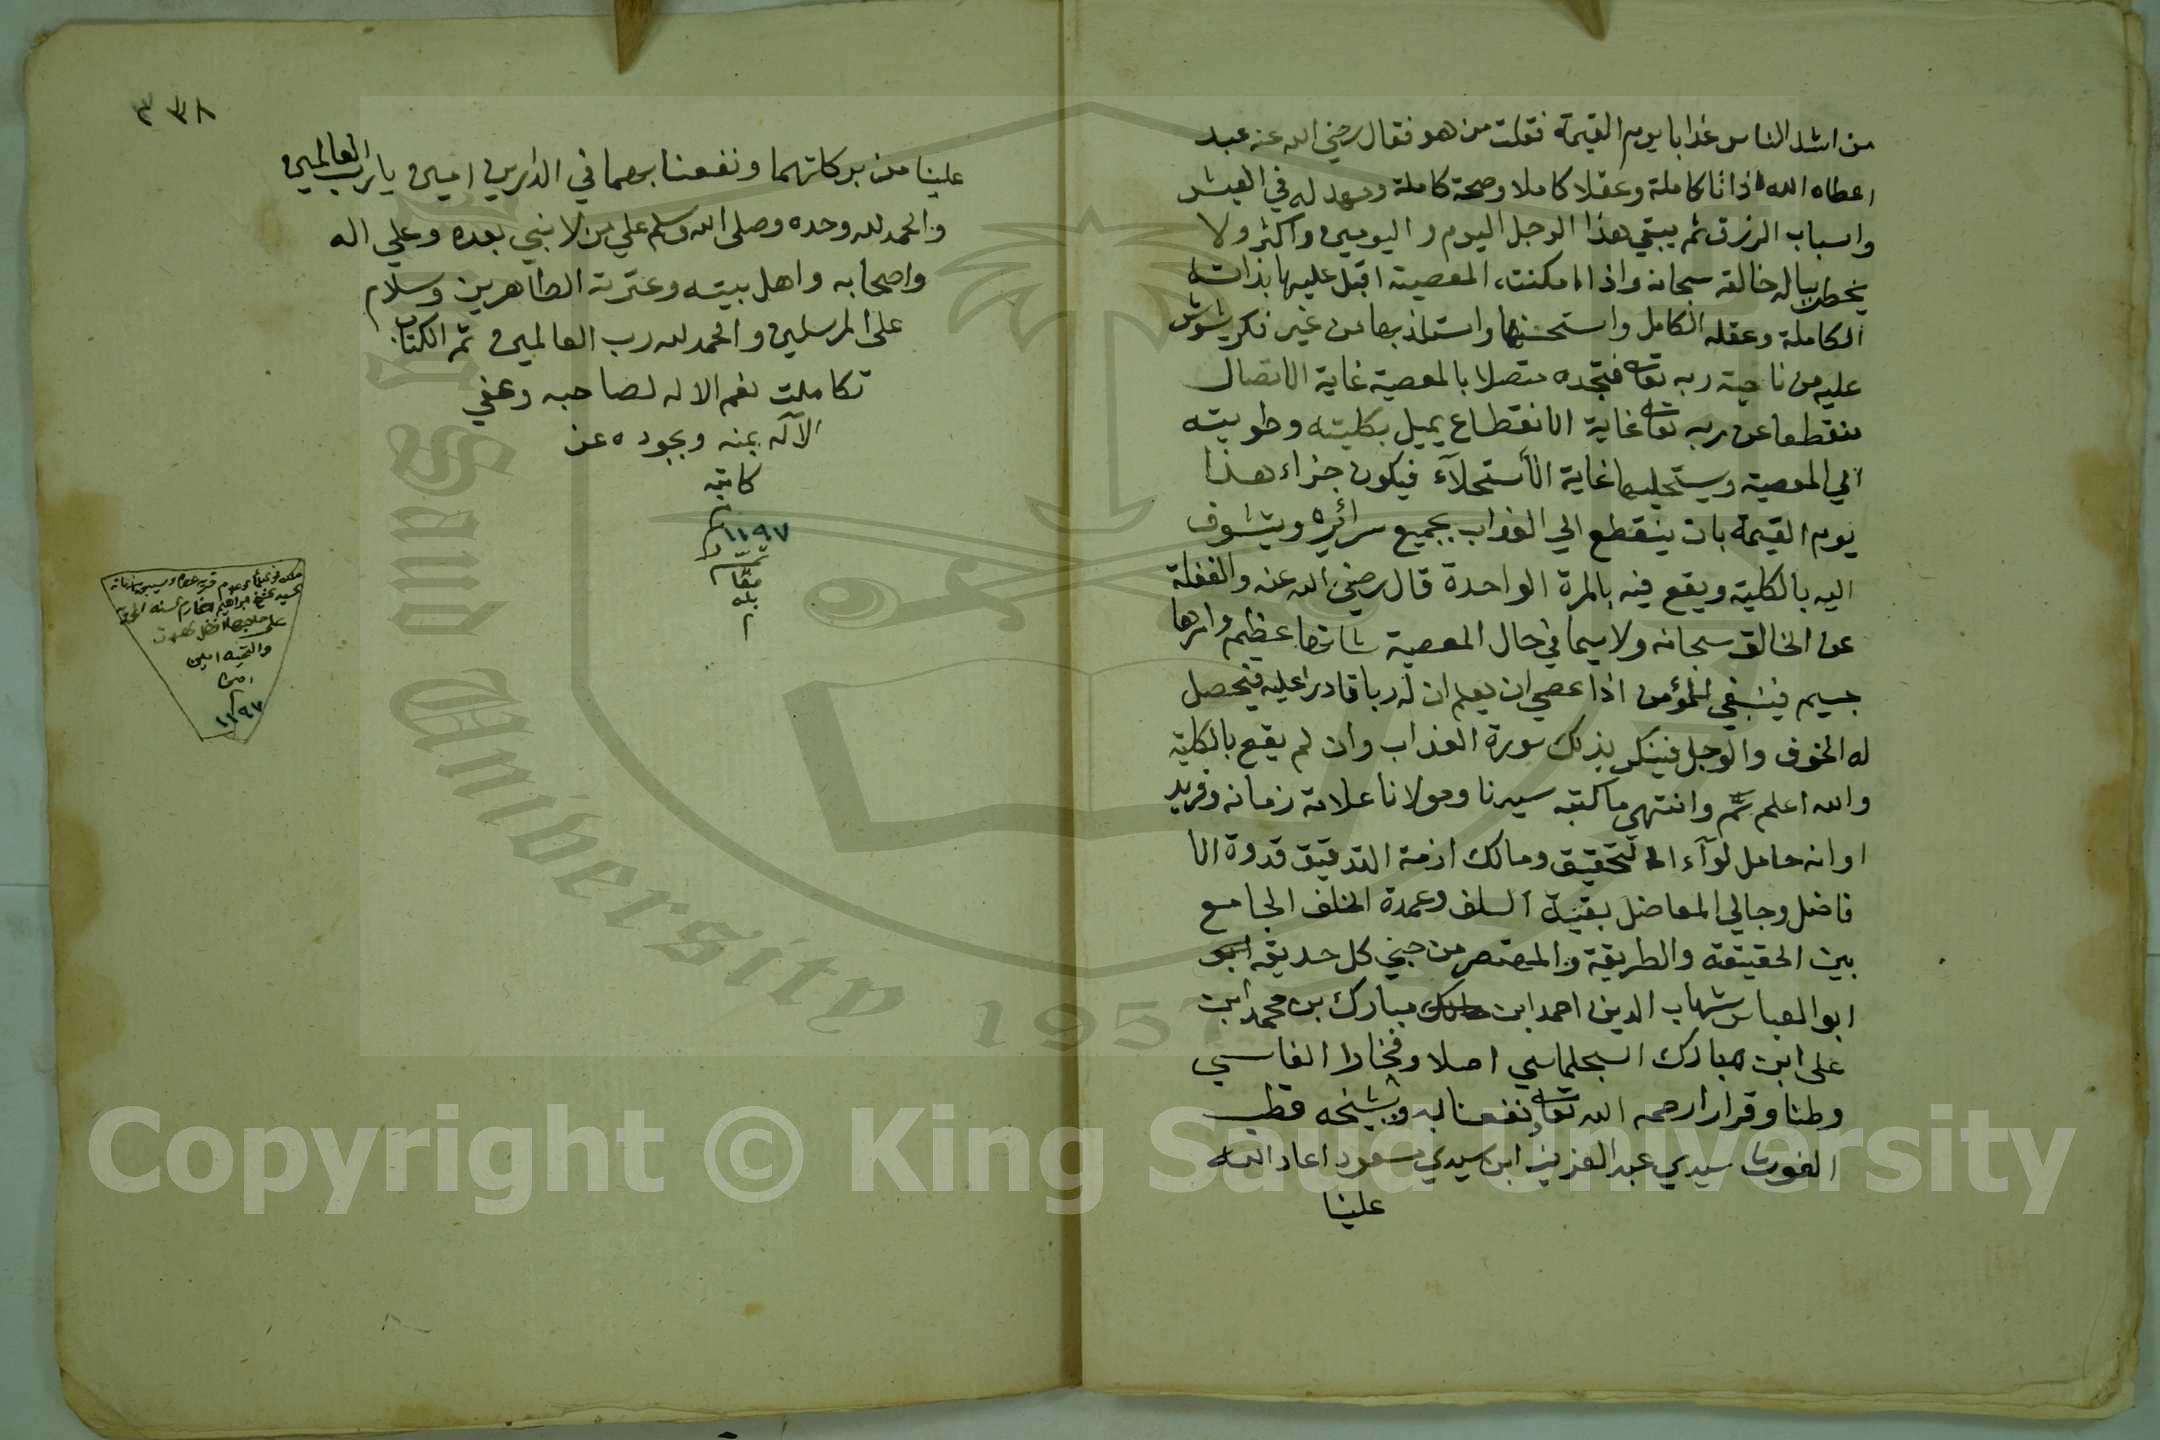 من اشد الناس عذابا يوم القيمة فقلت من هو فقال رضي الله عنه عبد
اعطاه الله ذاتا كاملة وعقلا كاملا وصحة كاملة ومهد له في العيش
واسباب الرزق ثم يبقي هذا الرجل اليوم واليومين واكثر ولا
يخطر بباله خالقه سبحانه واذا امكنته المعصية اقبل عليها بذاته
الكاملة وعقله الكامل واستحسنها واستلذ بها من غير فكر يشوش
عليه من ناحية ربه تعالى فتجده متصلا بالمعصية غاية الاتصال
منقطعا عن ربه تعالى غاية الانقطاع يميل بكليته وطويته
الي المعصية ويستحليها غاية الاستحلآء فيكون جزاء هذا
يوم القيمة بان ينقطع الي العذاب بجميع سرائره ويتشوف
اليه بالكلية ويقع فيه بالمرة الواحدة قال رضي الله عنه والغفلة
عن الخالق سبحانه ولا سيما في حال المعصية شانها عظيم وامرها
جسيم فينبغي للمؤمن اذا عصي ان يعلم ان له ربا قادرا عليه فيحصل
له الخوف والوجل فينكر بذلك سورة العذاب وان لم يقع بالكلية
والله اعلم تم وانتهي ما كتبه سيدنا ومولانا علامة زمانه وفريد
اوانه حامل لوآء التحقيق ومالك ازمة التدقيق قدوة الا
فاضل وجالي المعاضل بقية السلف وعمدة الخلف الجامع
بين الحقيقة والطريقة والمهتصر من جني كل حديقة ابو
ابو العباس شهاب الدين احمد ابن مالك مبارك بن محمد ابن
على ابن مبارك السجلماسي اصلا وفخارا الفاسي
وطنا وقرارا رحمه الله تعالى ونفعنا به وبشيخه قطب
الغوث سيدي عبد العزيز ابن سيدي مسعود اعاد الله
علينا
٣٣٨
علينا من بركاتهما ونفعنا بهما في الدارين امين يا رب العالمين
والحمد لله وحده وصلى الله وسلم علي من لا نبي بعده وعلي اله
واصحابه واهل بيته وعترته الطاهرين وسلام
على المرسلين والحمد لله رب العالمين تم الكتاب
تكاملت نعم الاله لصاحبه وعفي
الآله بمنه وبجوده عن
كاتبه
م
١١٩٧
تم
مقا
بله
م
على صاحبها افضل
والتحيه امين
امين
١١٩٧
King Saud University
1957
Copyright © King Saud University